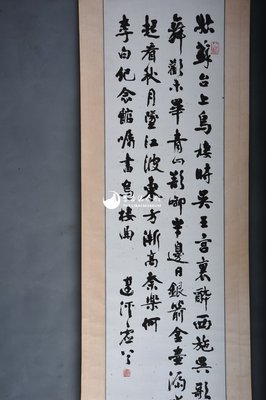 姑蘇台上烏棲時吳王宮裏醉西施吳歌
舞歡未畢青山影啣半邊日銀箭金壺漏
起看秋月墜江波東方漸高奈樂何
李白紀念館囑書烏棲曲